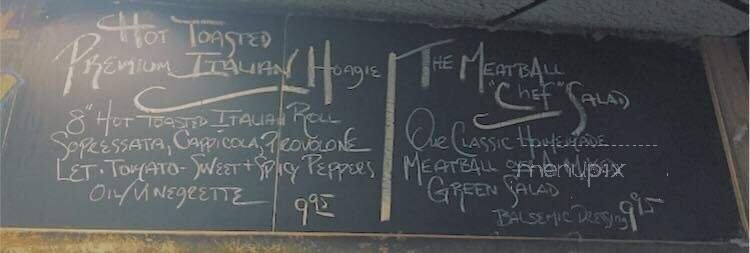 Hot Toasted
Premium Italian Hoagie
8" Hot Toasted Italian Roll
Sopressata, Cappicola, Provolone
Let. Tomato. Sweet + Spicy Peppers
Oil/Vinegrette
9.95
The Meatball
"Chef" Salad
Our Classic Homemade
Meatball
Green Salad
Balsemic Dressing 9.95
menupix